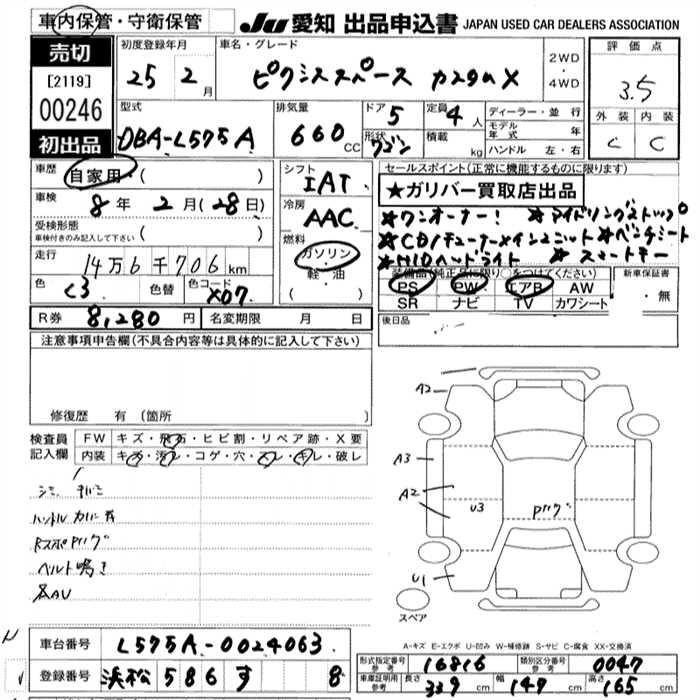 車内保管・守衛保管 JU 愛知 出品申込書 JAPAN USED CAR DEALERS ASSOCIATION
売切
[2119]
00246
初出品
初度登録年月
25 2月
車名・グレード
ピクシススペース カスタムX
2WD・4WD
評価点
3.5
外装 内装
C C
型式
DBA-L575A
排気量
660 CC
ドア 5
形状 ワゴン
定員 4 人
積載 kg
ディーラー・並行
モデル年式 年
ハンドル 左・右
車歴 自家用 ( )
車検 8年 2月(28日)
受検形態
車検付きのみ記入して下さい ( )
走行 14万6千706km
色 C3 色替 色コード X07
シフト IAT
冷房 AAC
燃料 ガソリン・軽・油
( )
セールスポイント(正常に機能するものに限ります)
★ガリバー買取店出品
★ワンオーナー! ★アイドリングストップ
★CD/チューナーメインユニット★ベンチシート
★HIDヘッドライト ★スマートキー
装備品(純正品に限り○をつけてください)
PS PW エアB AW
SR ナビ TV カワシート
新車保証書
・無
R券 8,280円 名変期限 月 日
後日品
注意事項申告欄(不具合内容等は具体的に記入して下さい)
修復歴 有 (箇所 )
検査員記入欄
FW キズ・飛石・ヒビ割・リペア跡・X要
内装 キズ・汚レ・コゲ・穴・スレ・キレ・破レ
ハンドルカバー
ベルト鳴き
A2
A3
A2
U3
U1
スペア
A-キズ E-エクボ U-凹み W-補修跡 S-サビ C-腐食 XX-交換済
車台番号 L575A-0024063
登録番号 浜松 586 す 8
形式指定番号 参考 16816 類別区分番号 参考 0047
車庫証明用 参考 長さ 339 cm 幅 147 cm 高さ 165 cm